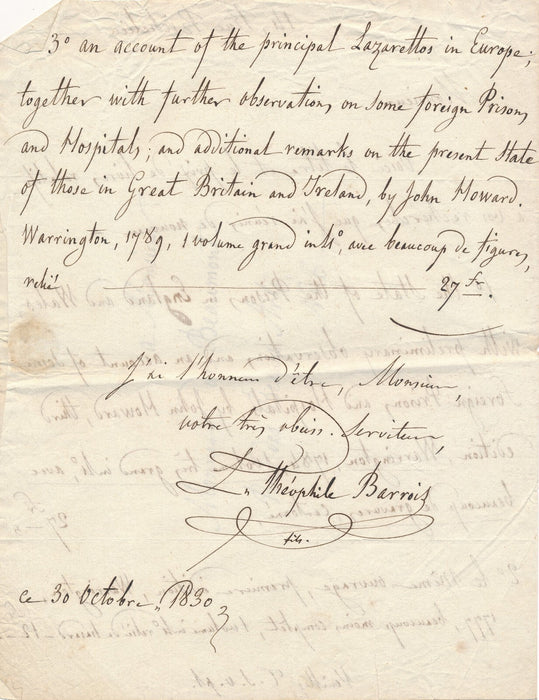 3° an account of the principal Lazarettos in Europe;
together with further observations on some foreign Prisons
and Hospitals; and additional remarks on the present State
of those in Great Britain and Ireland, by John Howard.
Warrington, 1789, 1 volume grand in 4°, avec beaucoup de figures,
relié 27 fr.
J'ai l'honneur d'être, Monsieur,
votre très obéiss. Serviteur,
L. Théophile Barrois
fils.
ce 30 Octobre, 1830